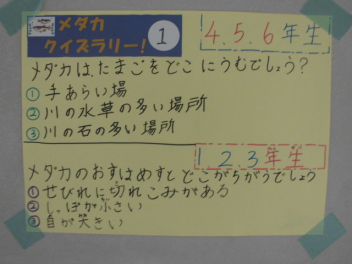 メダカ
クイズラリー!
1
4.5.6年生
メダカは、たまごをどこにうむでしょう?
①手あらい場
②川の水草の多い場所
③川の石の多い場所
1.2.3年生
メダカのおすはめすとどこがちがうでしょう
①せびれに切れこみがある
②しっぽが小さい
③目が大きい